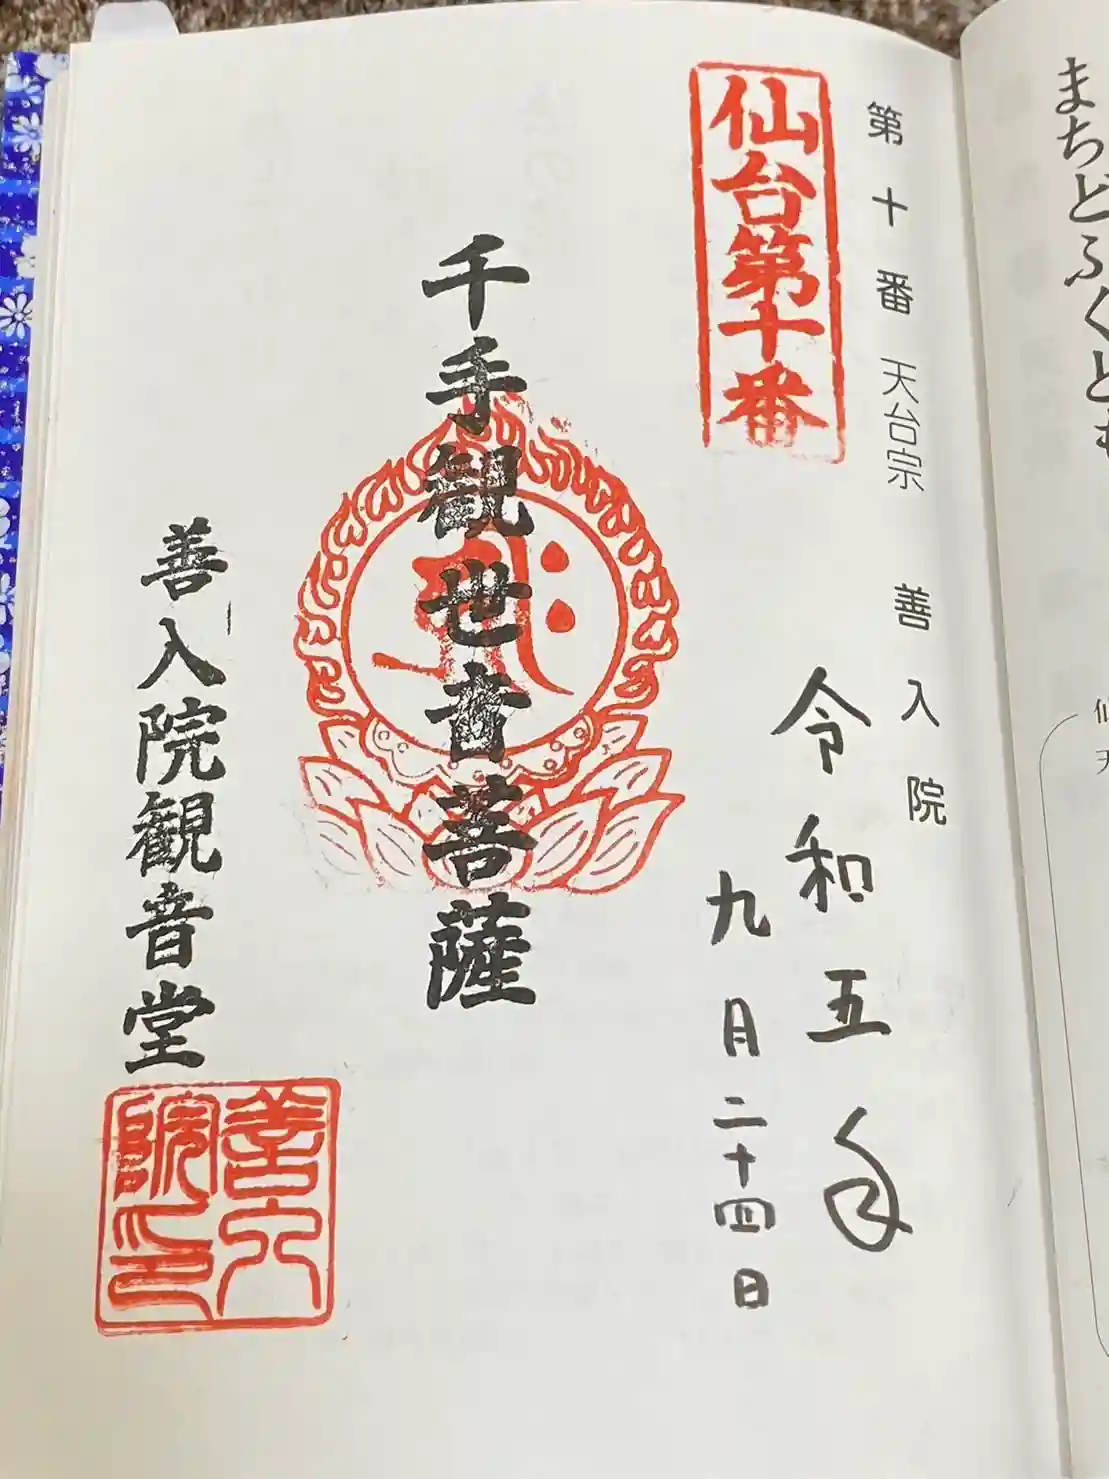 まちどふくとも
仙
天
第十番 天台宗 善入院
仙台第十番
令和五年
九月二十四日
千手観世音菩薩
善入院観音堂
善入
院印